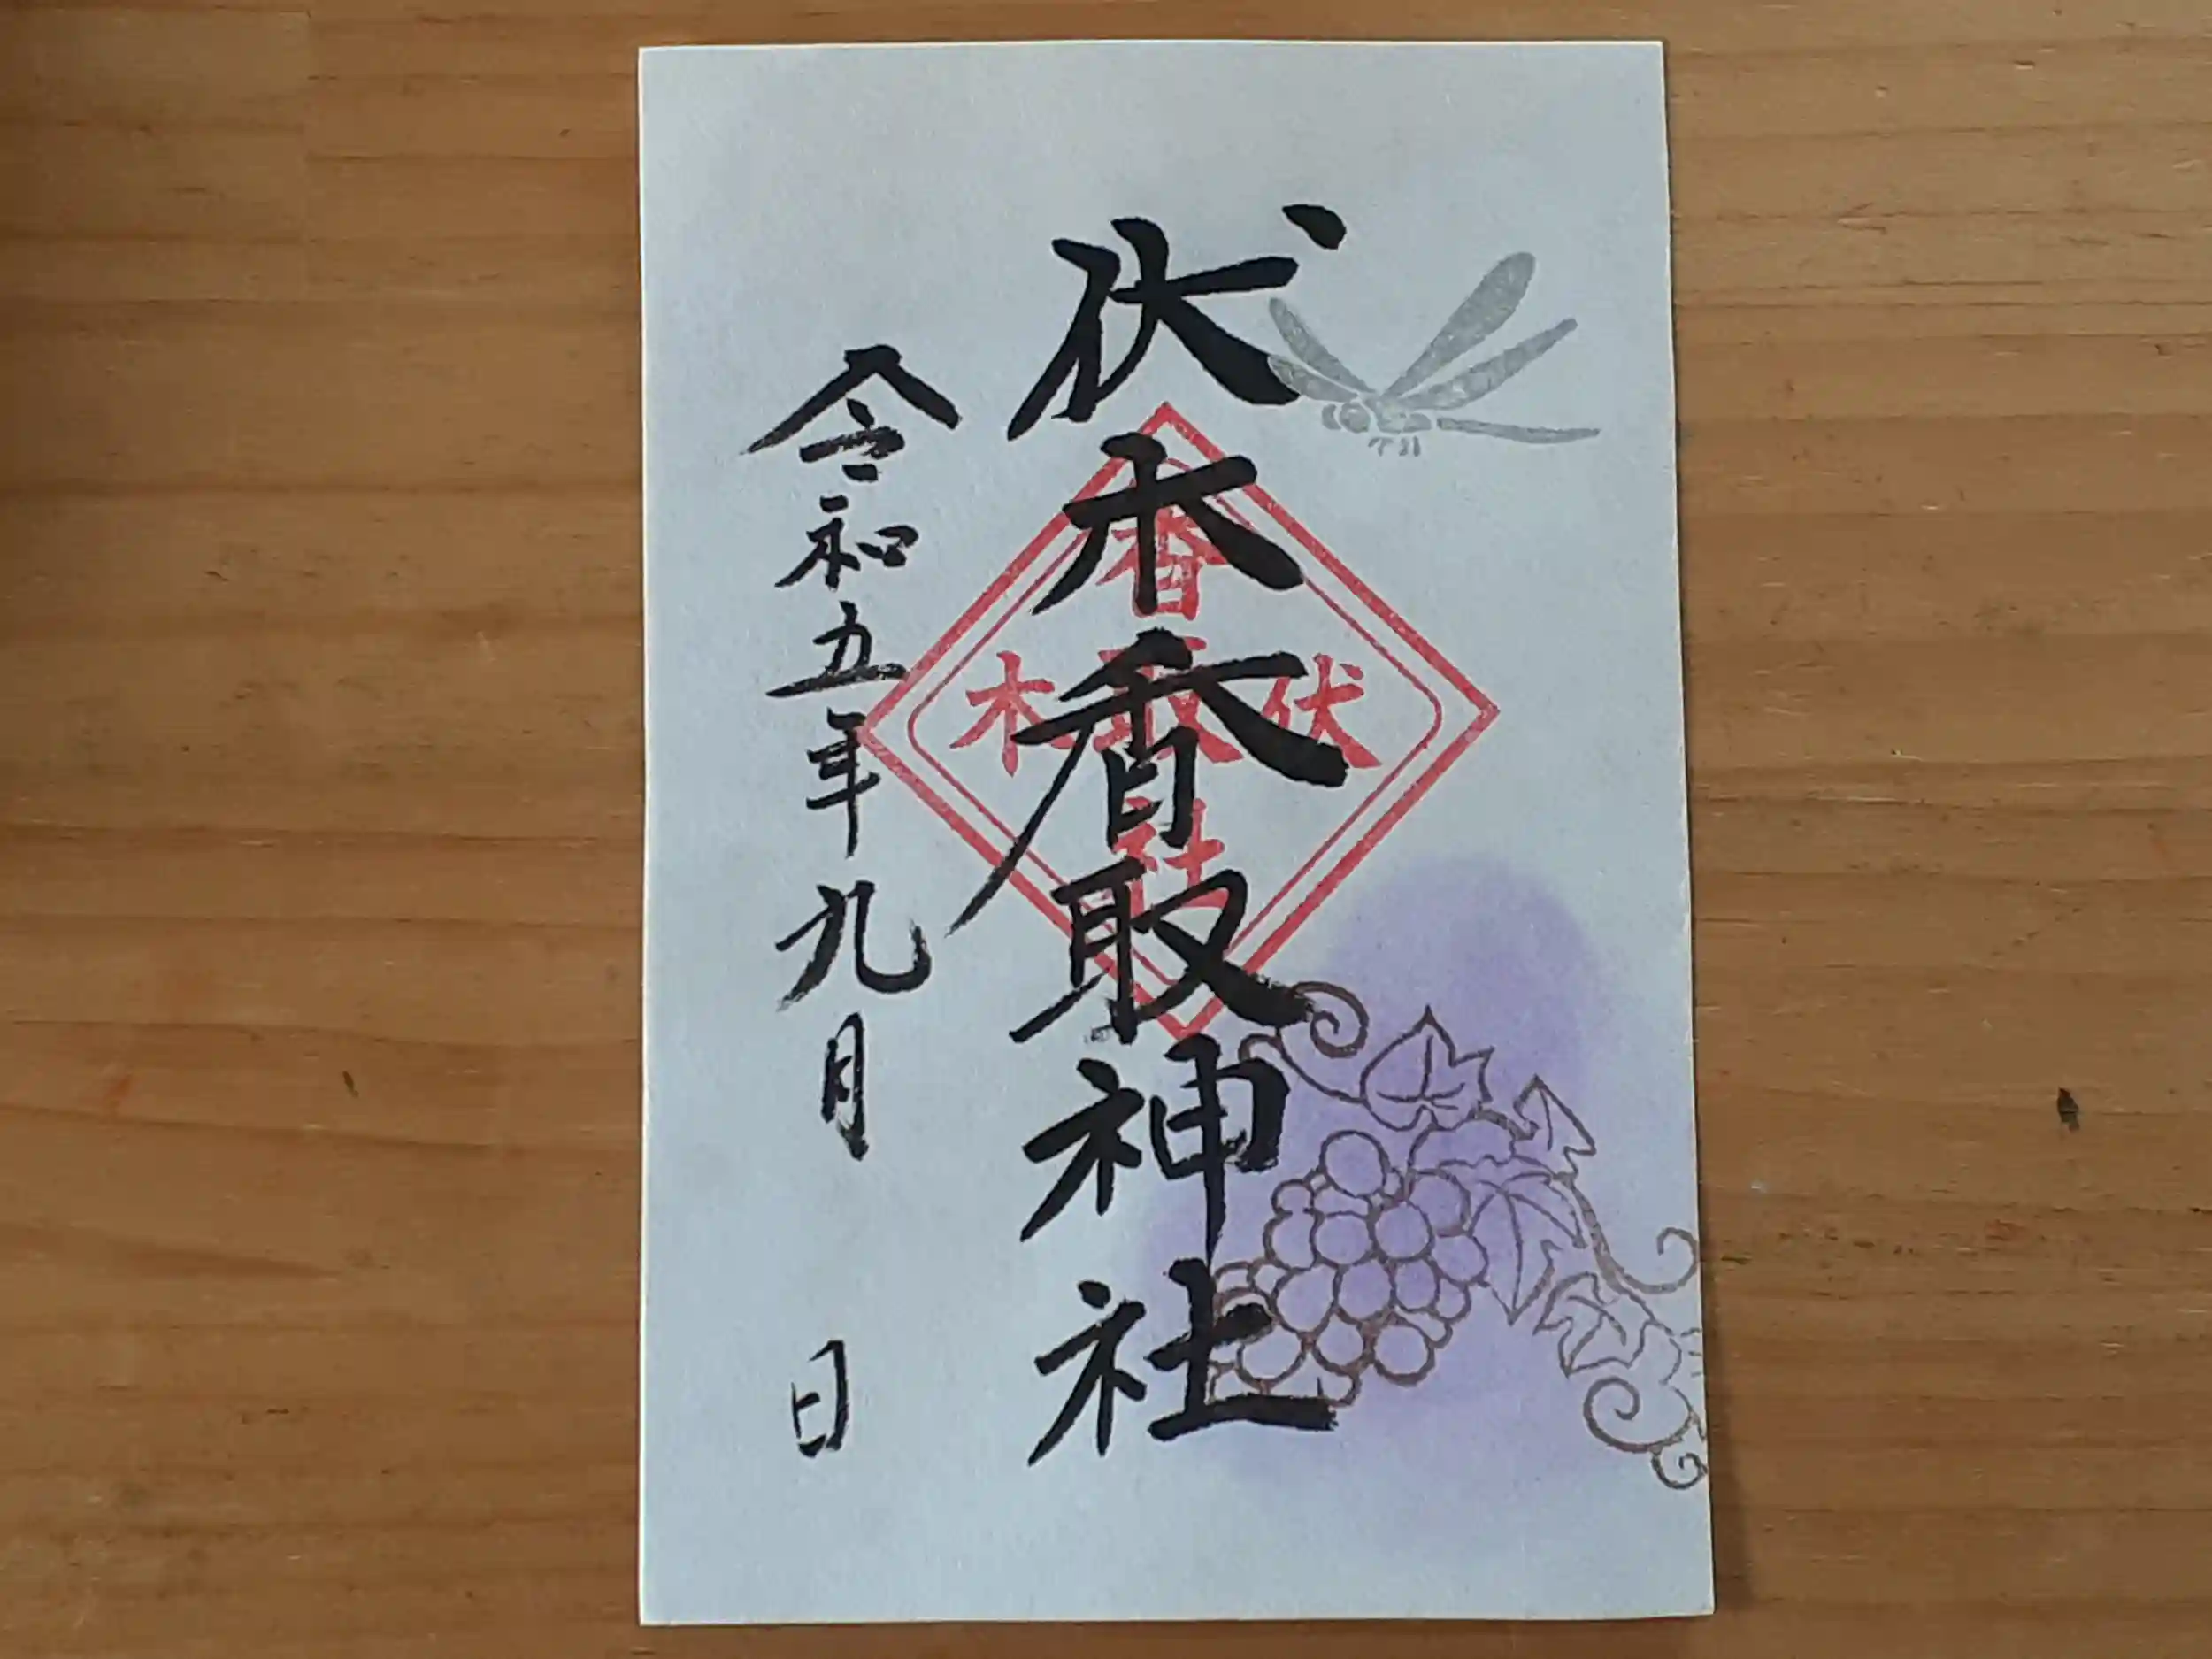 伏木香取神社
香取社
伏木
令和五年九月 日